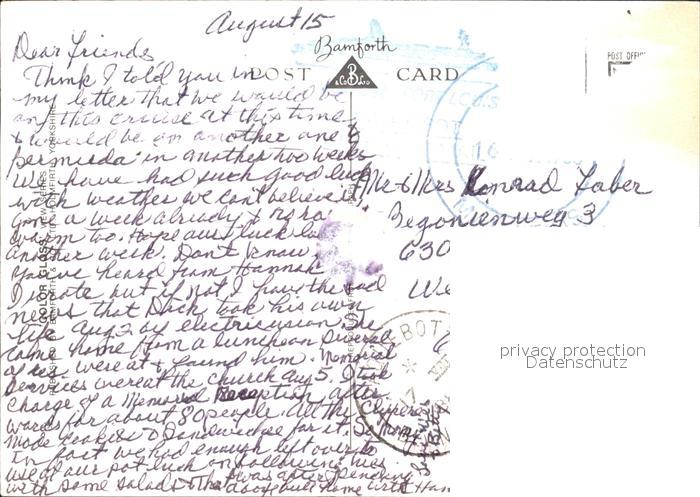 August 15
Dear Friends
Bamforth
POST CARD
POST OFFICE
Think I told you in
my letter that we would be
on this cruise at this time
& would be on another one to
Bermuda in another two weeks
We have had such good luck
with weather we can't believe it
gone a week already & no rain
warm too. Hope our luck
another week. Don't know
you've heard from Hannah
I wrote but if not I have the sad
news that Dick took his own
life Aug 2 by electricusion. She
came home from a luncheon several
of us were at & found him. Memorial
Services were at the church Aug 5. I took
charge of a Memorial Reception after-
wards for about 80 people. All the
made cookies & sandwiches for it. So many
In fact we had enough left over to
use at our pot luck on following
with some salads
Mr & Mrs Konrad Faber
Begonienweg 3
630
We
COLOR GLOSS VIEW SERIES
privacy protection
Datenschutz